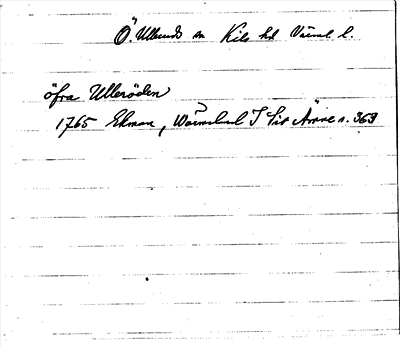 Ö. Ullerud sn Kils hd Värml l.
öfra Ulleröden
1765 Ekman, Wärmeland I Sit Ämne s. 369